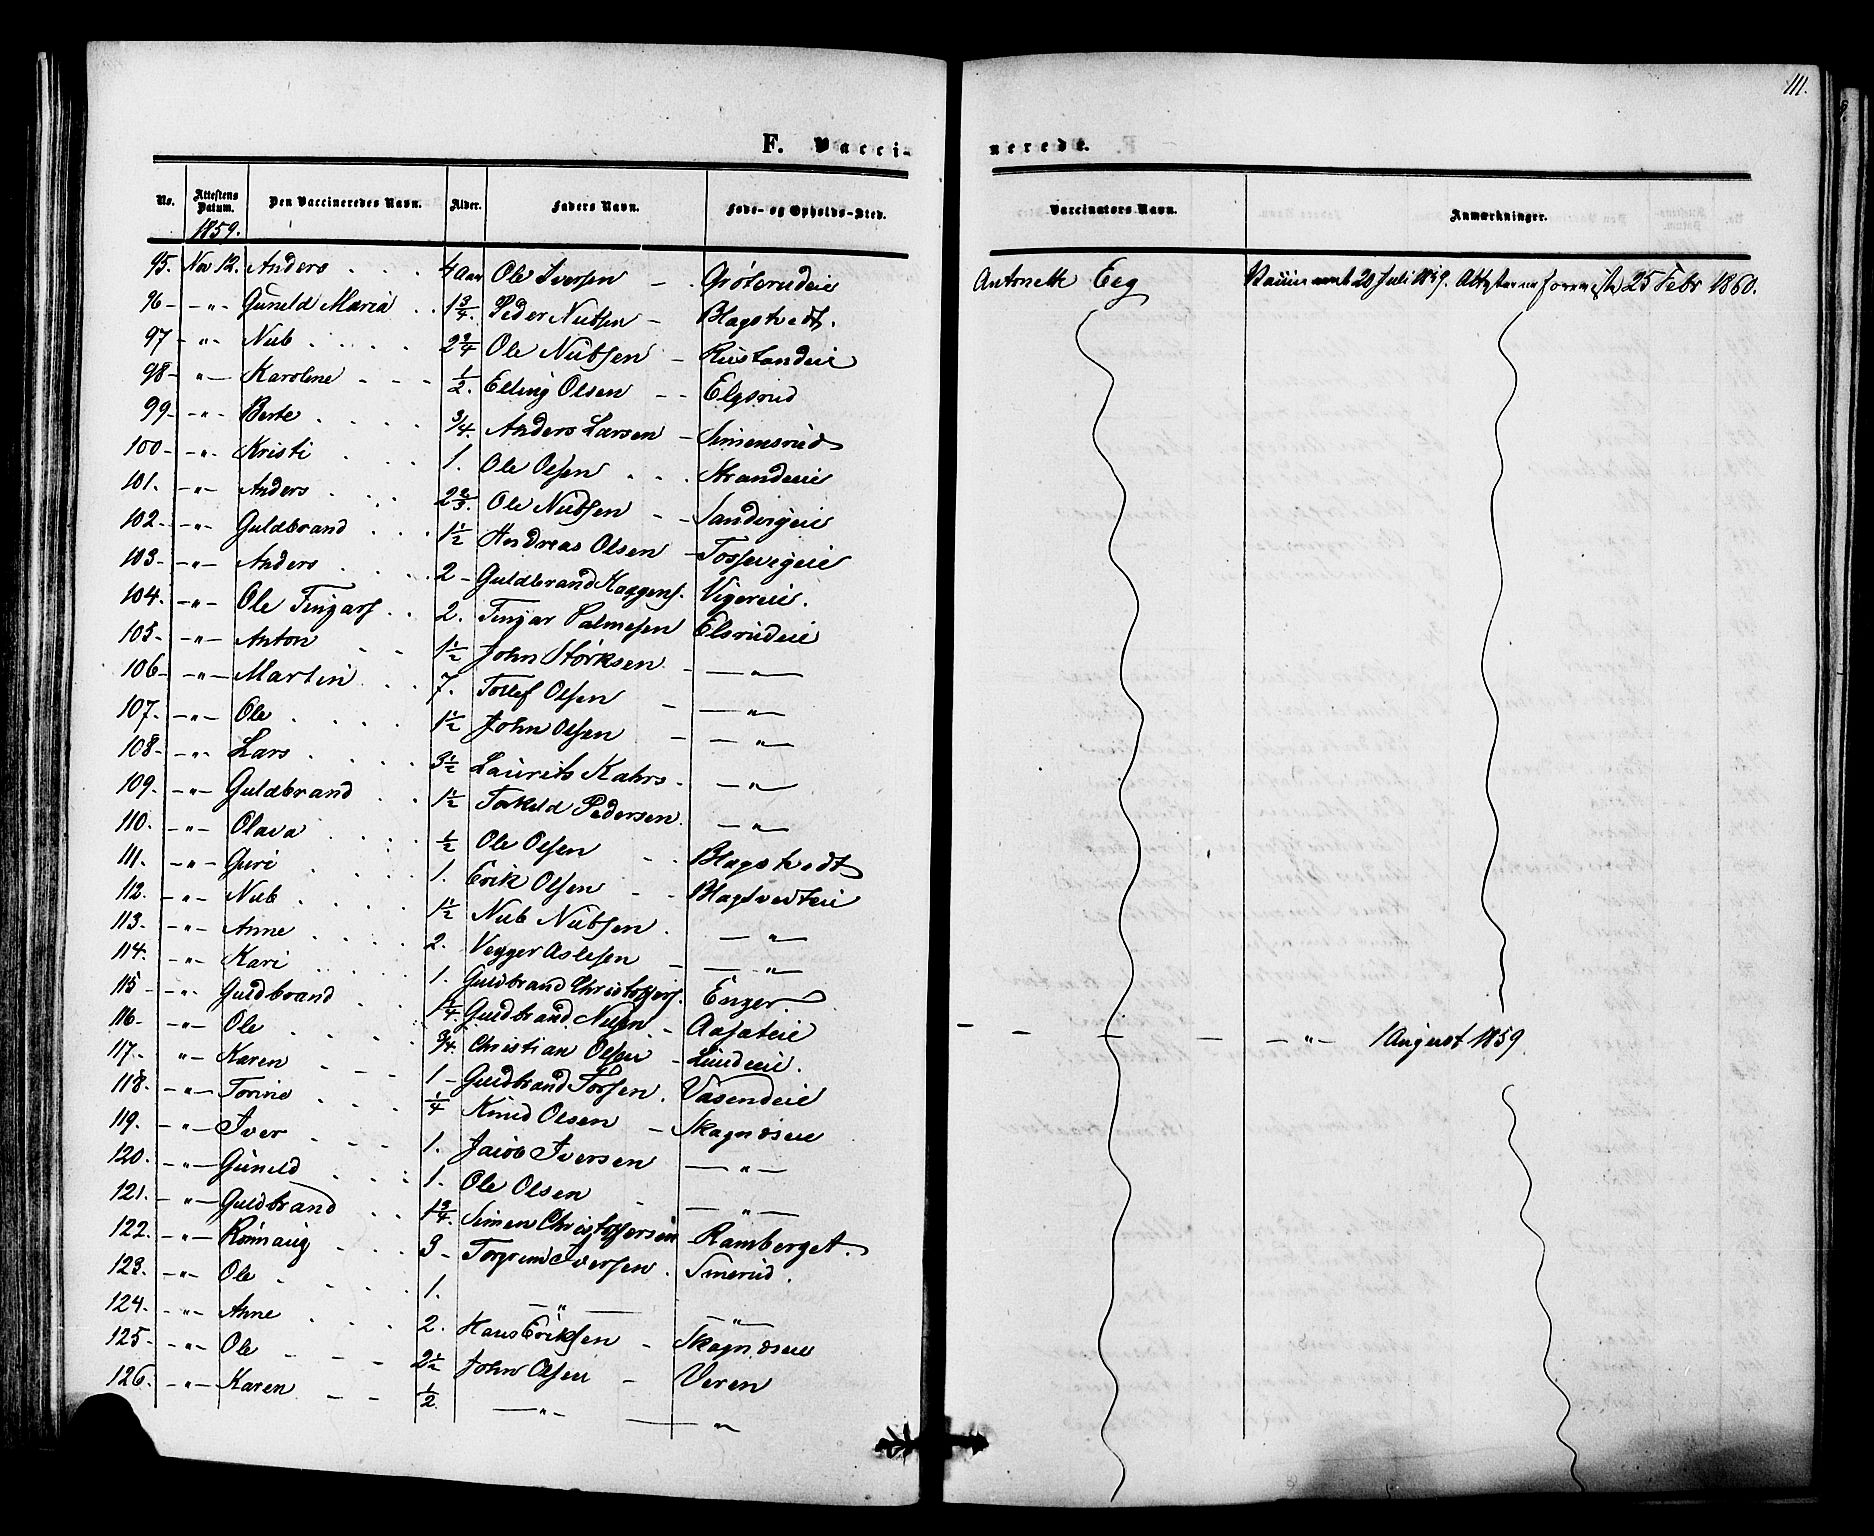 111.
F. Vaccinerede.
No. | Attestens Datum. | Den Vaccineredes Navn. | Alder. | Faders Navn. | Føde- og Opholds-Sted. | Vaccinators Navn. | Anmærkninger.
1859.
95. Nov 12. Anders . . . 4 Aar Ole Iversen — . Grötsrudeie Antonette Eeg 20 Juli 1859. 25 Febr 1860.
96 - - „ - Guneld Maria . . 1 3/4. Peder Nubsen — Blagstvedt.
97 - „ - Nub . . . . 2 3/4 Ole Nubsen — Ruslandeie
98 - - „ - Karoline - - - 1/2. Elling Olsen - - Elgsrud
99 - - „ - Berte . . . . 3/4. Anders Larsen — Simensrud
100 - - „ - Kristi . . . 1. Ole Olsen . . . Strandeie
101. - „ - Anders . . . 2 2/3. Ole Nubsen — Sandvigeie
102. - „ - Guldbrand . . . 1 1/2 Andreas Olsen — Tossevigeie
103. - „ - Anders . . . . 2 - Guldbrand Haagens. Vigereie.
104. - „ - Ole Tingars . . 2. Tingar Palmesen Elsrudeie
105. - „ - Anton - - 1 1/2 John Störksen - — „ —
106 - - „ - Martin . . 7. Tollef Olsen - — „ —
107. - „ - Ole . . . . 1 1/2 John Olsen — — „ —
108 - - „ - Lars . . . . 3 1/2 Laurits Kahrs - — „ —
109. - „ - Guldbrand . . 1 1/2 Torkild Pedersen. — „ —
110. - „ - Olava . . . . 1/2 Ole Olsen - - Blagstvedt
111. - „ - Guri . . . . 1. Erik Olsen - - Blagstvedteie
112. - „ - Nub . . . . 1 1/2 Nub Nubsen . — „ —
113. - „ - Anne . . . . 2. Vegger Aslesen — — „ —
114. - „ - Kari . . . . 1. Guldbrand Christoffers. Enger
115 - - „ - Guldbrand . . 1 1/4. Guldbrand Nilsen - Aasateie
116 - - „ - Ole . . . . 3/4. Christian Olsen — Lundeie. — „ — 1 August 1859.
117. - „ - Karen - - - 1 - Guldbrand Torsen . Vasendeie
118. - „ - Torine . . . 1/4 Knud Olsen — Skagnæseie
119. - „ - Iver . . . 1. Jacob Iversen — „ —
120. - „ - Guneld . . . 1. Ole Olsen - — „ —
121. - „ - Guldbrand . . 1 3/4. Simen Christoffersen Ramberget.
122. - „ - Rönnaug . . . 3 - Torgrim Iversen . Smerud.
123. - „ - Ole . . . . 1. — „ — — „ —
124. - „ - Anne . . . 2. Hans Eriksen — Skagnæseie
125 - - „ - Ole - - - 2 1/2 John Olsen — Veren
126. - „ - Karen - - 1/2. — „ — — „ —